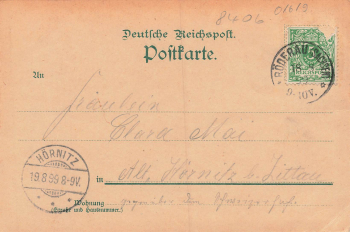 8406
Deutsche Reichspost.
Postkarte.
RÖDERAU
9-10V.
An
Fräulein
Clara Mai
HÖRNITZ
19.8.99.8-9V.
in
Alt Hörnitz bei Zittau
Wohnung
(Straße und Hausnummer)
gegenüber dem